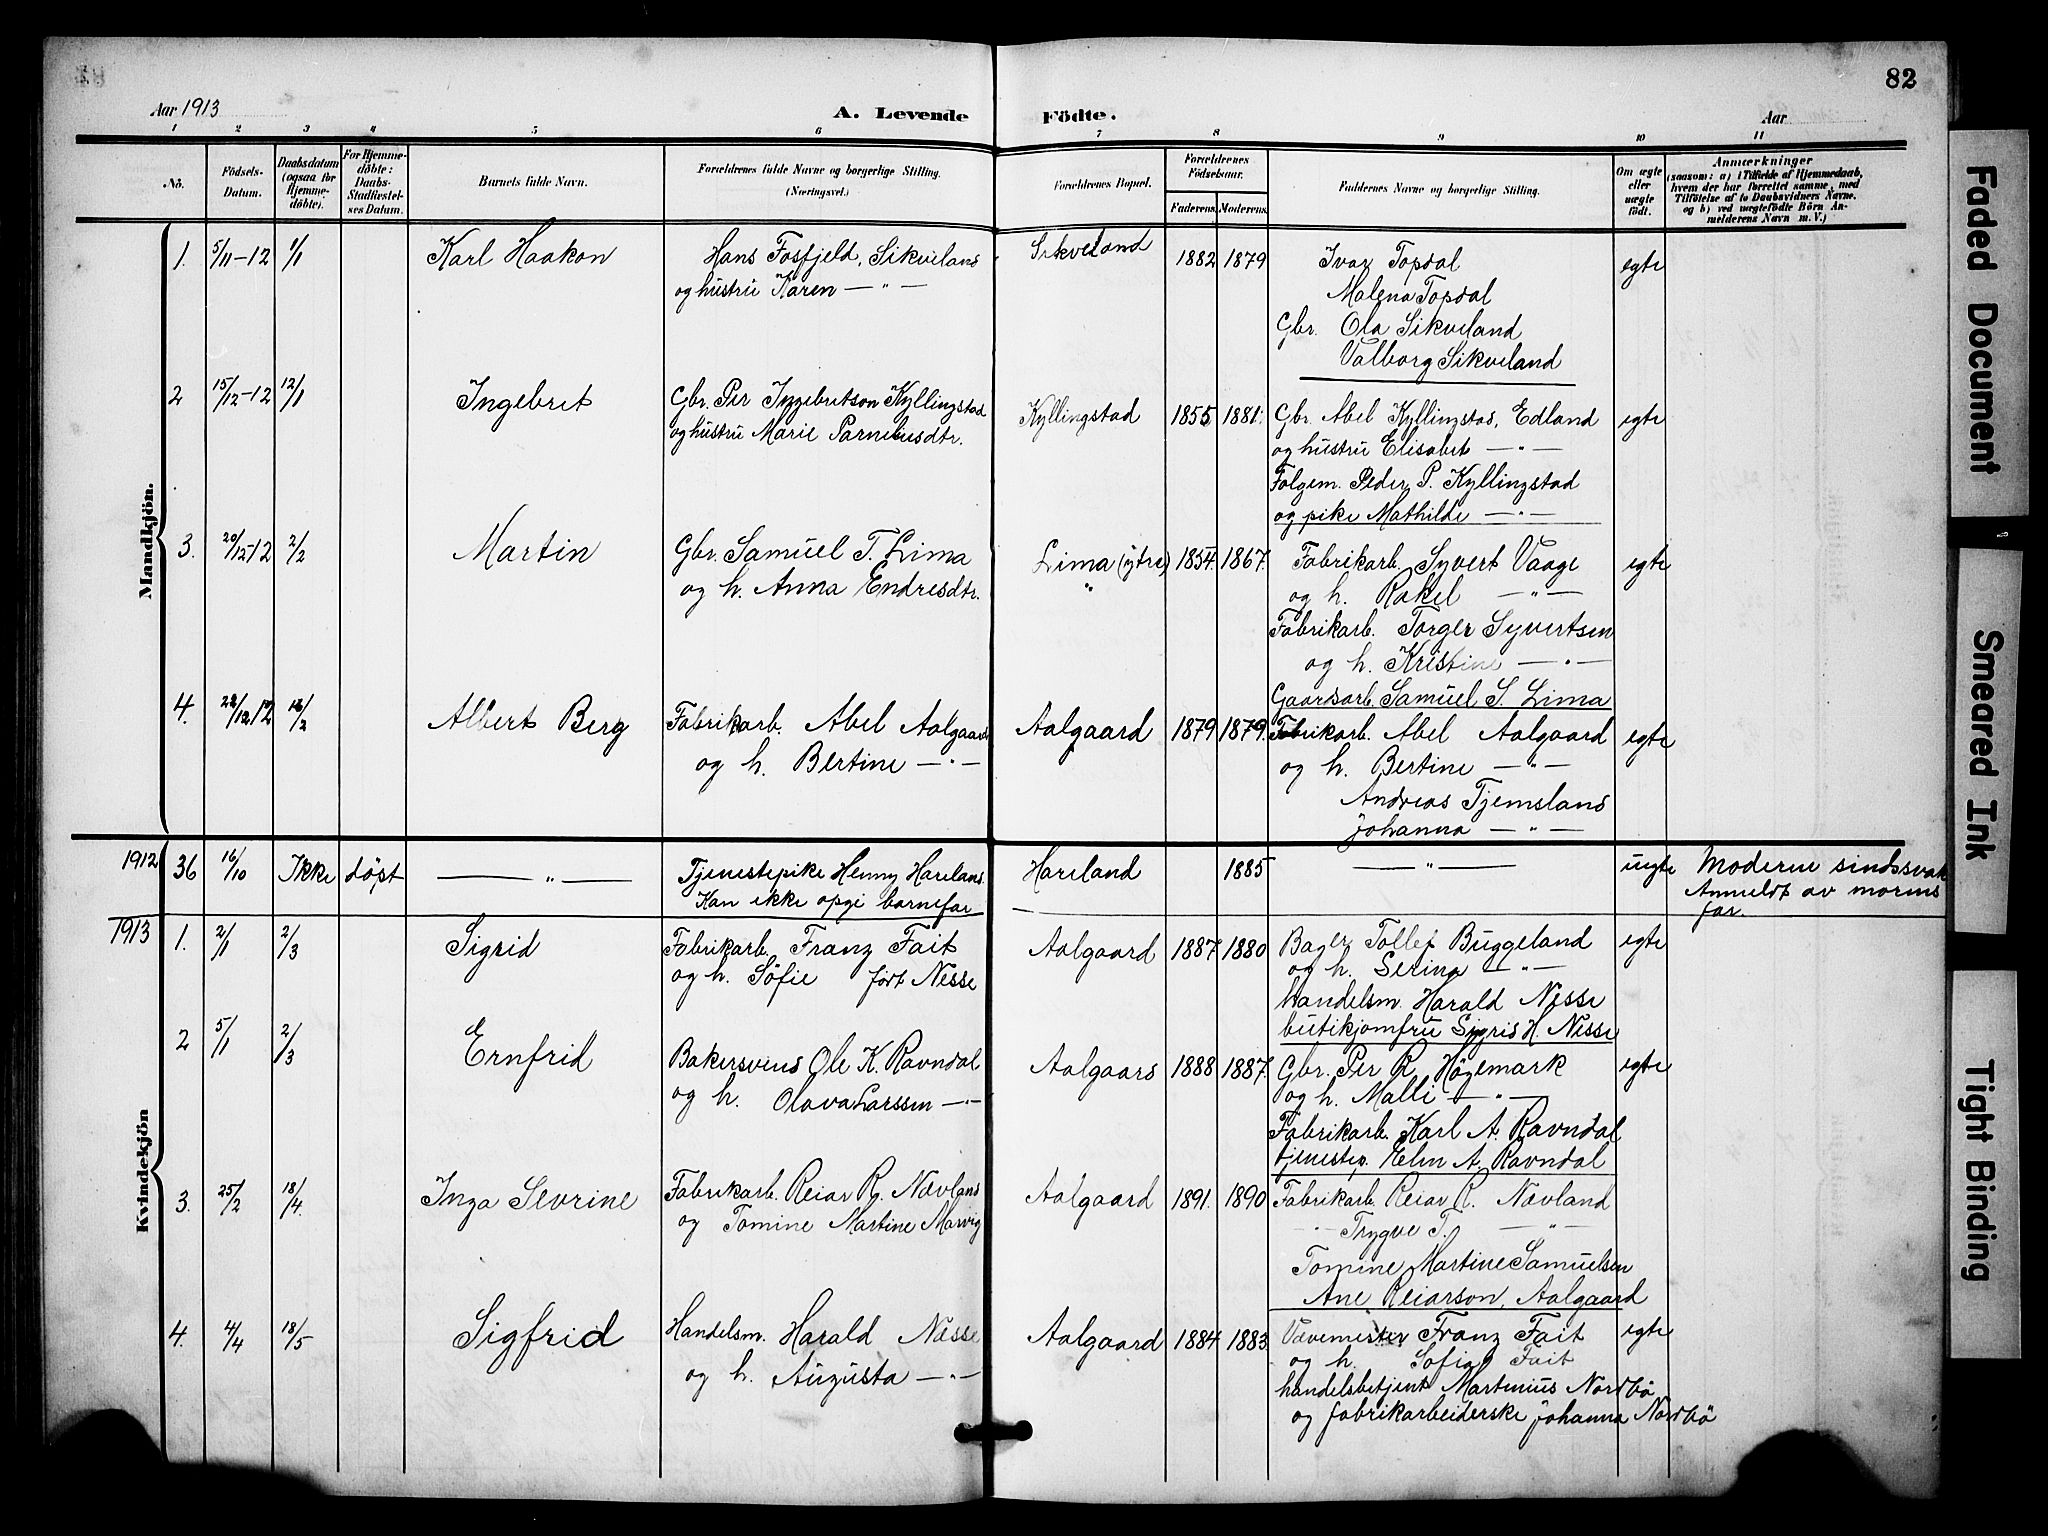 82
Aar 1913
A. Levende Födte.
Aar
1 2 3 4 5 6 7 8 9 10 11
No.
Födsels-Datum.
Daabsdatum (ogsaa for Hjemme-döbte).
For Hjemme-döbte: Daabs-Stadfæstel-ses Datum.
Barnets fulde Navn.
Forældrenes fulde Navne og borgerlige Stilling. (Næringsvei.)
Forældrenes Bopæl.
Forældrenes Födselsaar.
Faderens. Moderens.
Faddernes Navne og borgerlige Stilling.
Om ægte eller uægte födt.
Anmærkninger
(saasom: a) i Tilfælde af Hjemmedaab, hvem der har forrettet samme, med Tilföielse af to Daabsvidners Navne, og b) ved uægtefödte Börn An-melderens Navn m. V.)
Mandkjön.
1. 5/11-12 1/1 Karl Haakon Hans Fosfjeld, Sikveland Sikveland 1882 1879 Ivar Topdal egte
og hustru Karen —„— Malena Topdal
Gbr. Ola Sikveland
Valborg Sikveland
2 15/12-12 12/1 Ingebret Gbr. Per Ingebretson Kyllingstad Kyllingstad 1855 1881. Gbr. Abel Kyllingstad, Edland egte
og hustru Marie Parneliusdtr. og hustru Elisabet —„—
Folgem. Peder P. Kyllingstad
og pike Mathilde —„—
3. 20/12-12 2/2 Martin Gbr. Samuel T. Lima Lima (ytre) 1854. 1867. Fabrikarb. Syvert Vaage egte
og h. Anna Endresdtr. „ og h. Rakel —„—
Fabrikarb. Torger Syvertsen
og h. Kristine —„—
Gaardsarb. Samuel S. Lima
4. 12 16/2 Albert Berg Fabrikarb. Abel Aalgaard Aalgaard 1879 1879. Fabrikarb. Abel Aalgaard egte
og h. Bertine —„— og h. Bertine —„—
Andreas Tjemsland
Johanna —„—
Kvindekjön
1912 36 16/10 Ikke döpt —„— Tjenestepike Henny Hareland. Hareland 1885 —„— uegte Moderen sindssvak
Kan ikke opgi barnefar Anmeldt av morens
far.
1913 1. 2/1 2/3 Sigrid Fabrikarb. Franz Fait Aalgaard 1887 1880 Bager Tollef Buggeland egte
og h. Sofie født Nesse og h. Serina —„—
handelsm. Harald Nesse
butikjomfru Sigrid H. Nesse
2 5/1 2/3 Ernfrid Bakersvend Ole K. Ravndal Aalgaard 1888 1887. Gbr. Per R. Högemark egte
og h. Olava Larssen —„— og h. Malli —„—
Fabrikarb. Karl A. Ravndal
tjenestep. Elen A. Ravndal
3. 25/2 18/4. Inga Sevrine Fabrikarb. Reiar R. Nævland Aalgaard 1891. 1890 Fabrikarb. Reiar R. Nævland
og Tomine Martine Marvig —„— Trygve T. —„—
Tomine Martine Samuelsen
Ane Reiarson, Aalgaard
4. 4/4 18/5 Sigfrid Handelsm. Harald Nesse Aalgaard 1884 1883 Vævemester Franz Fait egte
og h. Augusta —„— og h. Sofie Fait
handelsbetjent Martinius Nordbö
og fabrikarbeiderske Johanna Nordbö
Faded Document
Smeared Ink
Tight Binding